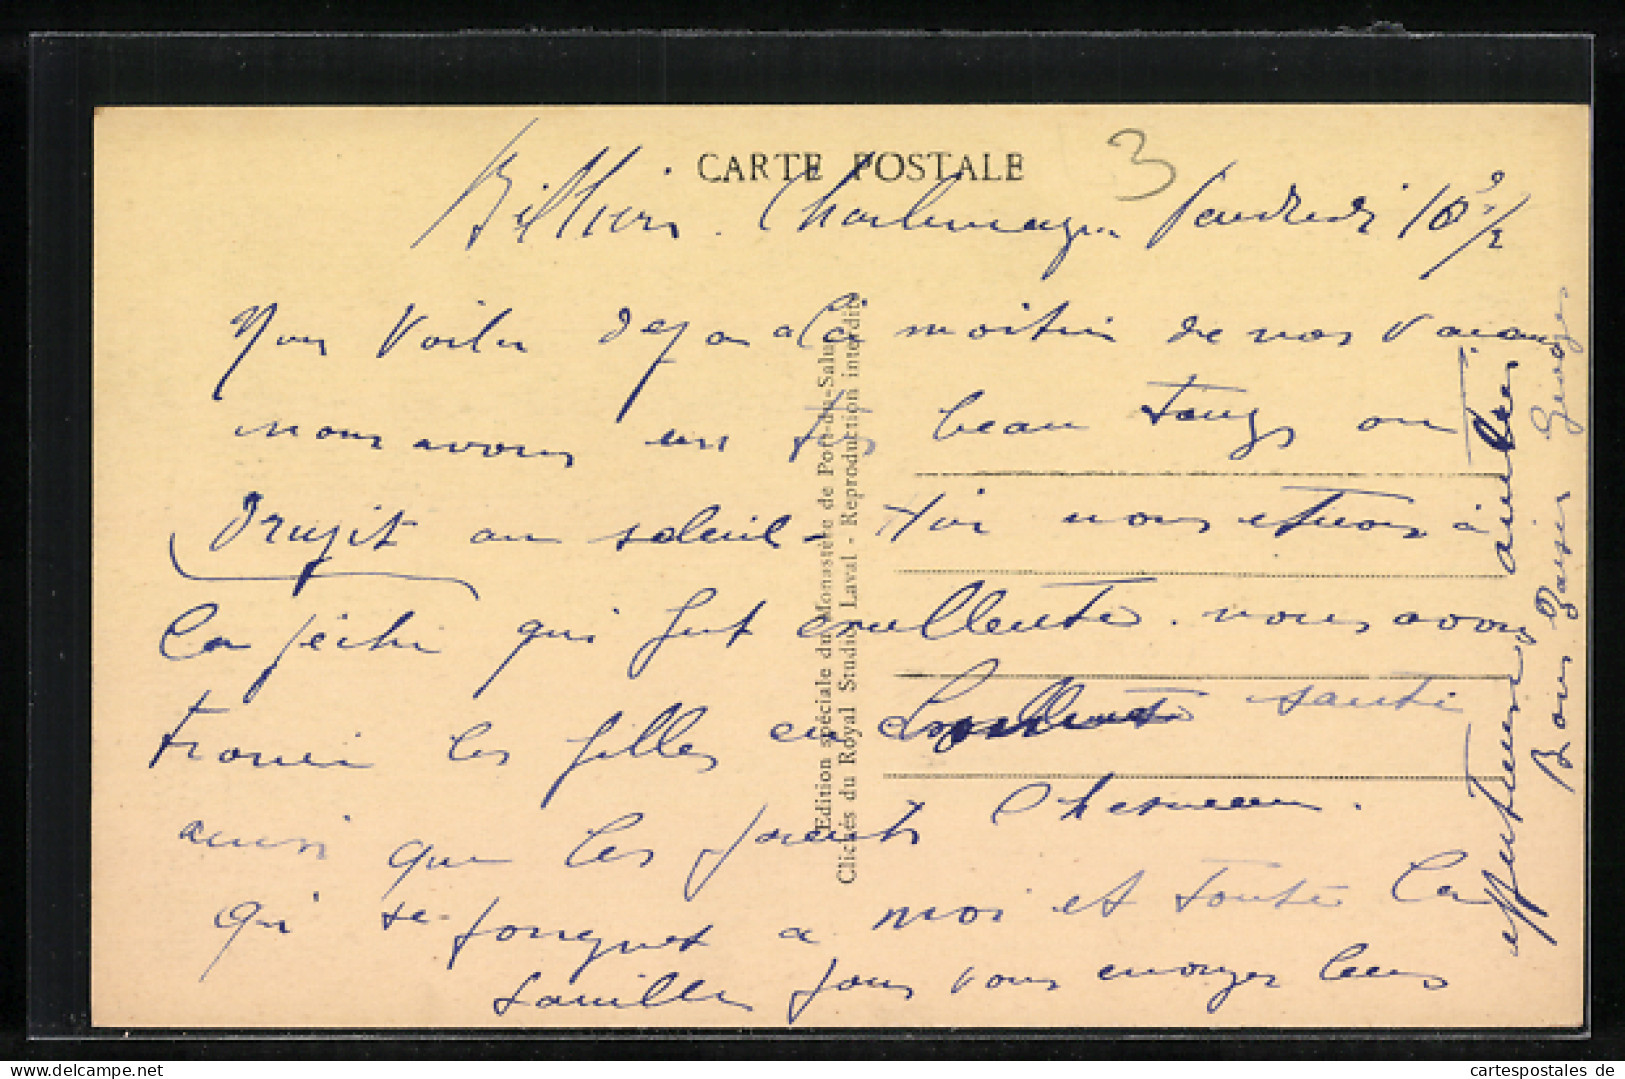 CARTE POSTALE
3
Villiers-Charlemagne Vendredi 10 h 1/2
Nous Voila deja a la moitie de nos vacances
nous avons un très beau temps on
au soleil - Hier nous etions à
la pêche qui fut excellente. nous avons
trouvé les filles en excellente santé
ainsi que les parents
qui se joignent a moi et toute la
famille pour vous envoyer leurs
affectueuses amitiés
Bons Baisers Georges
Edition spéciale du Monastère de Port-du-Salut
Clichés du Royal Studio Laval - Reproduction interdite
hippostcard.com
cartespostales de